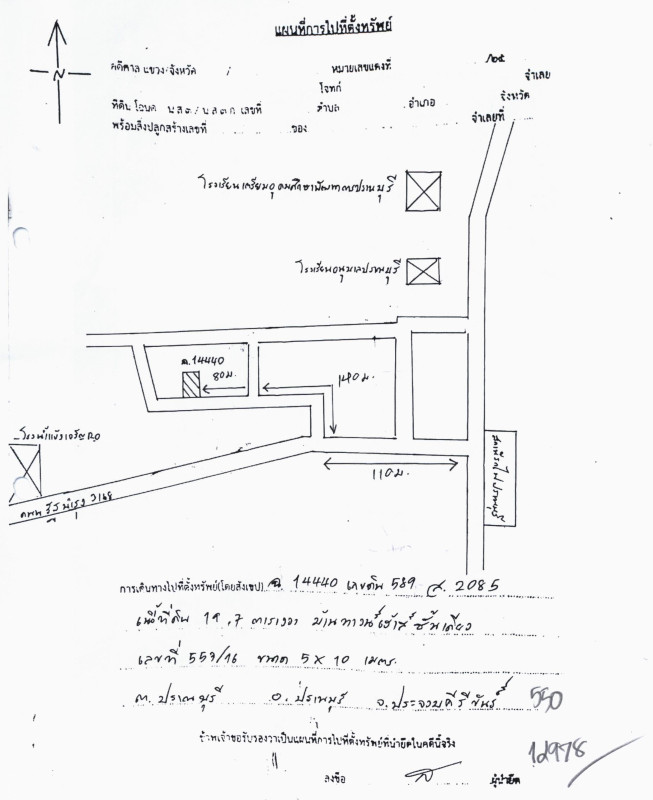 แผนที่การไปที่ตั้งทรัพย์
N
คดีศาล แขวง/จังหวัด หมายเลขแดงที่ /๒๕
โจทก์ จำเลย
ที่ดิน โฉนด น.ส.๓/น.ส.๓ ก เลขที่ ตำบล อำเภอ จังหวัด
พร้อมสิ่งปลูกสร้างเลขที่ ของ จำเลยที่
โรงเรียนเตรียมอุดมศึกษาพัฒนาการปราณบุรี
โรงเรียนอนุบาลปราณบุรี
ฉ.14440
80ม.
140ม.
โรงน้ำแข็งเจริญ
110ม.
สถานีรถไฟปราณบุรี
ถนน รัฐบำรุง
การเดินทางไปที่ตั้งทรัพย์(โดยสังเขป) ฉ. 14440 เลขดิน 589 ส. 2085
เนื้อที่ดิน 19.7 ตารางวา บ้านทาวน์เฮ้าส์ชั้นเดียว
เลขที่ 559/16 ขนาด 5 x 10 เมตร.
ต. ปราณบุรี อ. ปราณบุรี จ. ประจวบคีรีขันธ์ 550
ข้าพเจ้าขอรับรองว่าเป็นแผนที่การไปที่ตั้งทรัพย์ที่นำยึดในคดีนี้จริง
12978
ลงชื่อ ผู้นำยึด